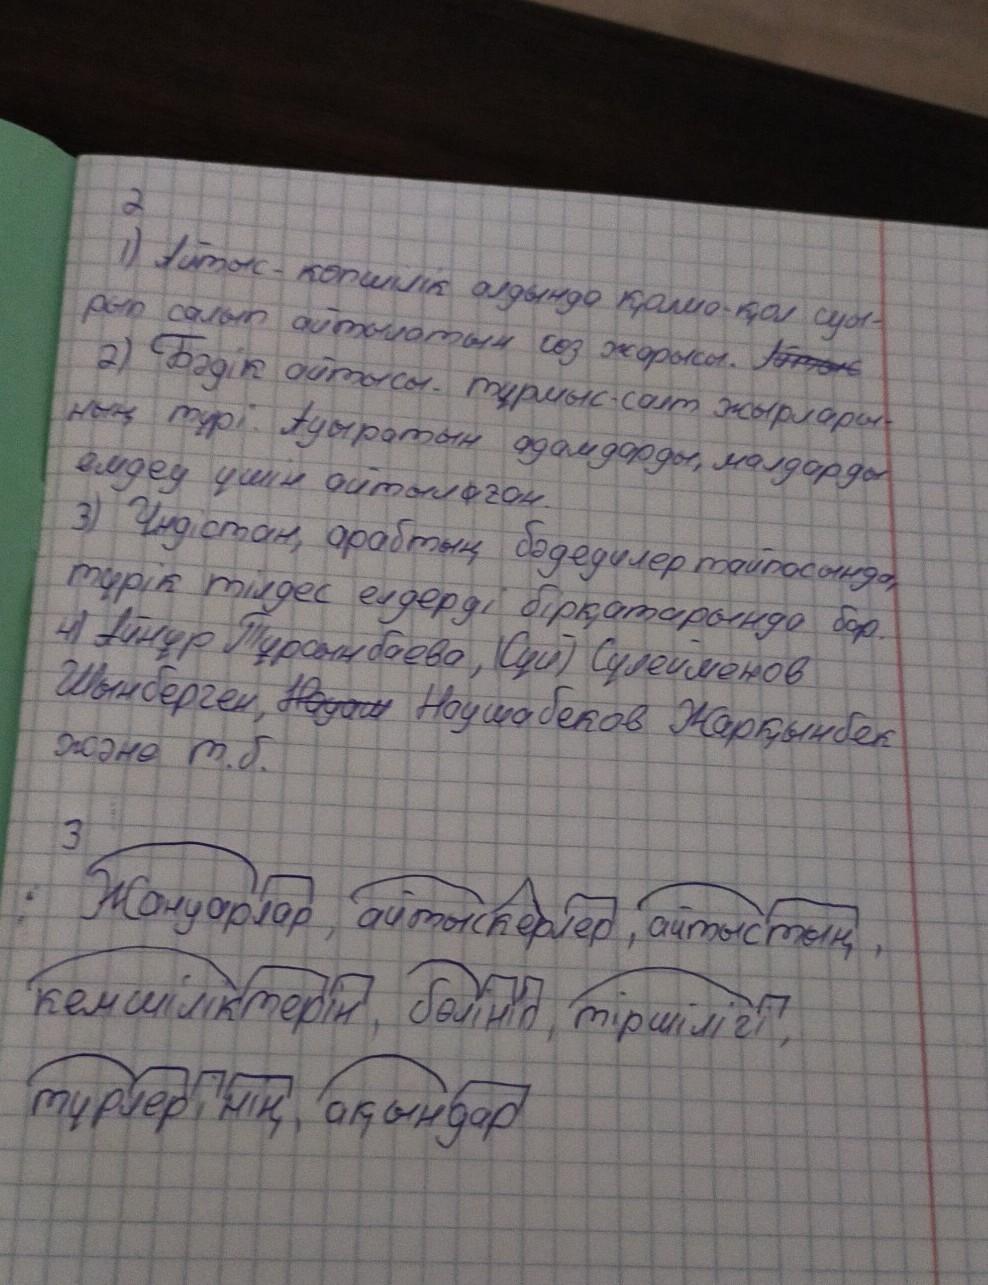 2
1) Айтыс - көпшілік алдында қолма-қол суы-
рып салып айтылатын сөз жарысы. Айтыс
2) Бәдік айтысы - тұрмыс-салт жырлары-
ның түрі. Ауыратын адамдарды, малдарды
емдеу үшін айтылған.
3) Үндістан, арабтың бәдедулер тайпасында,
түрік тілдес елдерді бірқатарында бар.
4) Айнұр Тұрсынбаева, Сүлейменов
Шынберген, Наушабеков Жарқынбек
және т.б.
3
Жануарлар, айтыскерлер, айтыстың,
кемшіліктерін, бөлініп, тіршілігі,
түрлерінің, ақындар